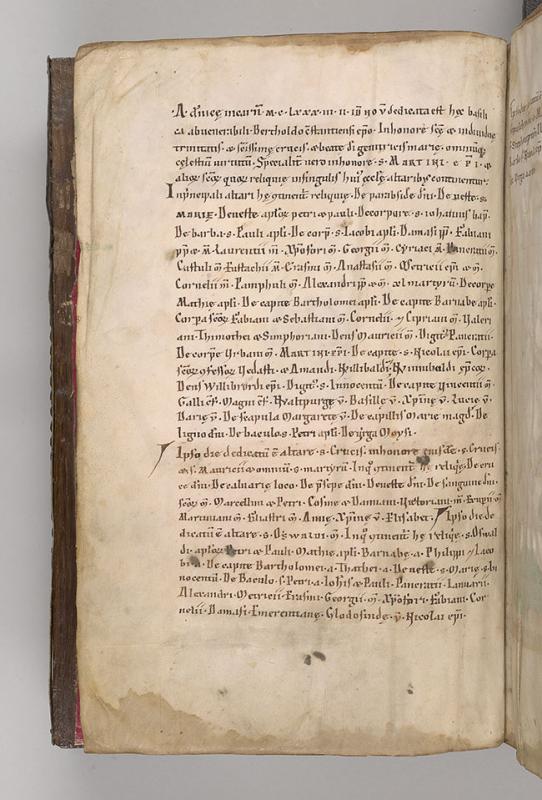 A dñicę incarñ. M.C.LXXX.III.II. IIII NOV dedicata est hęc basili
ca a venerabili Bertholdo cstantiensi epo. In honore scę & individuę
trinitatis & scīssimę crucis & beatę di genitricis marie. omniūq;
cęlestiū virtutū. Specialit vero in honore. S. MARTINI. EPI. &
alioʒ scoʒ quoʒ reliquię in singulis hui ęcclę altaribȝ continentur.
In principali altari hę continent reliquię. De
MARIĘ. De veste aploʒ petri & pauli. De corpore. S. iohannis bap.
De barba. S. Pauli apli. De corp. S. Iacobi apli. Damasi pp. Fabiani
pp & m̄. Laurentii m̄. Xpofori m̄. Georgii m̄. Cyriaci m̄. Pancratii m̄.
Castuli m̄. Eustachii m̄. Erasmi m̄. Anastasii m̄. Metricii epi & m̄.
Cornelii m̄. Pamphuli m̄. Alexandri pp & m̄. & martyrū. De corpe
Mathię apli. De capite Bartholomei apli. De capite Barnabę apli.
Corpa scoʒ Fabiani & Sebastiani m̄. Cornelii. & Cypriani m̄. Valeri
ani. Thimothei & Simphoriani. Dens Mauricii m̄. Digit Pancratii.
De corpe Vrbani m̄. MARTINI. EPI. De capite. S. Nicolai epi. Corpa
scoʒ cfessoʒ Vedasti. & Amandi. Willibaldi. Wunibaldi epcoʒ.
Dens Willibrordi epi. Digit. S. Innocentū. De capite vincentii m̄.
Galli cf. Magni cf. Waltpurgę v̄. Basille v̄. Xpinę v̄. Lucię v̄.
Darię v̄. De scapula Margaretę v̄. De capillis Marię magd. De
ligno dni. De baculo. S. Petri apli. De virga Moysi.
Ipso die dedicatū ē altare. S. Crucis. in honore eiusdē. S. Crucis
& S. Mauricii & omniū. S. martyrū. In q continent hę reliqę. De cru
ce dni. De calvarię loco. De psepe dni. De veste dni. De sanguine dni.
scoʒ m̄. Marcellini & Petri. Cosmę & Damiani. Victoriani m̄.
Martiniani m̄. m̄. Annę. Xpinę v̄. Elisabet. Ipso die de
dicatū ē altare. S. OSWALDI. m̄. In q continent hę reliqę. S. Oswal
di. aploʒ Petri & Pauli. Mathię apli. Barnabę. a. Philippi & Iaco
bi. a. De capite Bartholomei. a. Thathei. a. De veste. S. Marię. S. In
nocentū. De Baculo. S. Petri. a. Iohis & Pauli. Pancratii. Ianuarii.
Alexandri. Metricii. Erasmi. Georgii. m̄. Xpofori. Fabiani. Cor
nelii. Damasi. Emerentianę. Glodosindę. v̄. Nicolai epi.